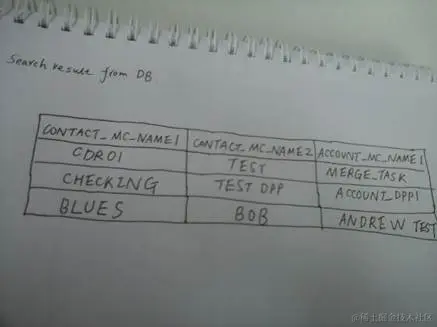 Search result from DB
CONTACT_MC_NAME1 CONTACT_MC_NAME2 ACCOUNT_MC_NAME1
CDR01 TEST MERGE_TASK
CHECKING TEST DPP ACCOUNT_DPP1
BLUES BOB ANDREW TEST
@稀土掘金技术社区